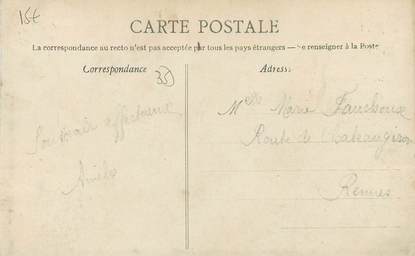 15€
CARTE POSTALE
La correspondance au recto n'est pas acceptée par tous les pays étrangers — Se renseigner à la Poste
Correspondance
35
Adresse
Melle Marie
Route de
Rennes
Souvenir affectueux